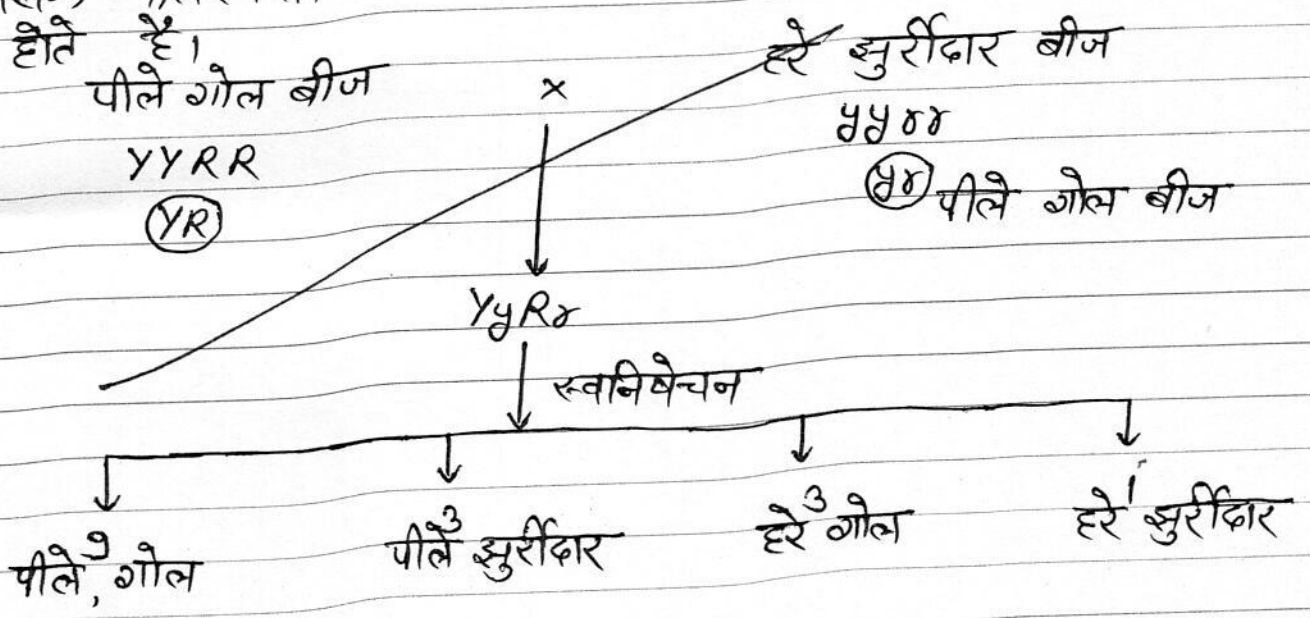 होते है।
पीले गोल बीज × हरे झुर्रीदार बीज
YYRR yyrr
YR yr पीले गोल बीज
YyRr
स्वनिषेचन
9 3 3 1
पीले, गोल पीले झुर्रीदार हरे गोल हरे झुर्रीदार